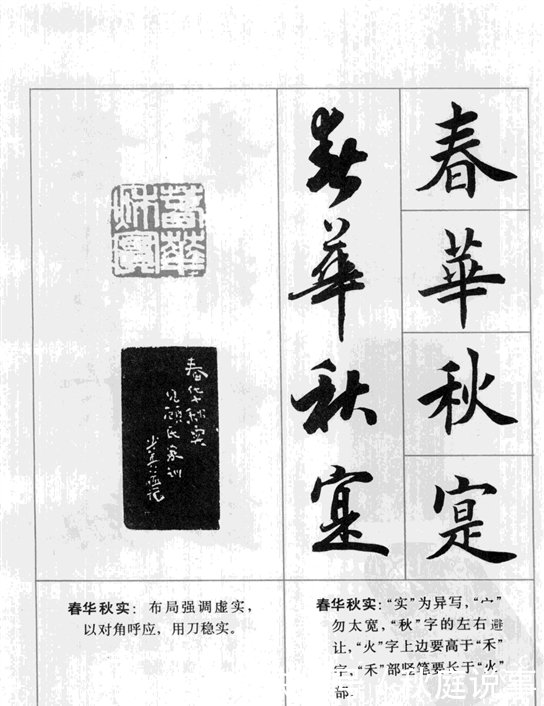 春華秋寔
春華秋寔
春華秋實
春华秋实
见颜氏家训
春华秋实：布局强调虚实，
以对角呼应，用刀稳实。
春华秋实：“实”为异写，“宀”
勿太宽，“秋”字的左右避
让，“火”字上边要高于“禾”
字，“禾”部竖笔要长于“火”
部。
庭说事